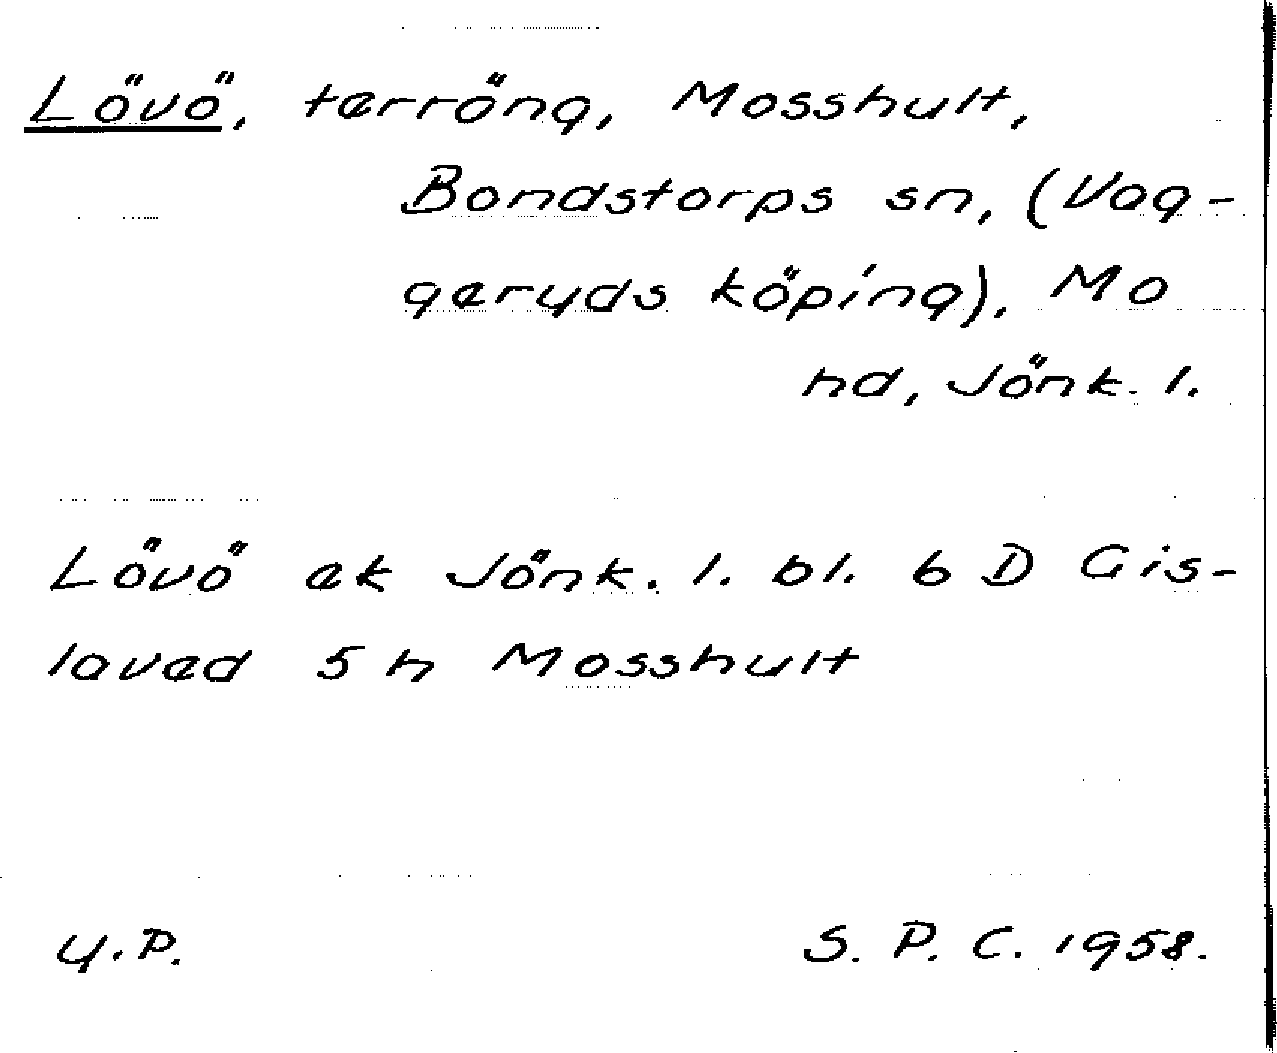 Lövö, terräng, Mosshult,
Bondstorps sn, (Vag-
geryds köping), Mo
hd, Jönk. l.
Lövö ek Jönk. l. bl. 6 D Gis-
laved 5 h Mosshult
Y.P.
S. P. C. 1958.